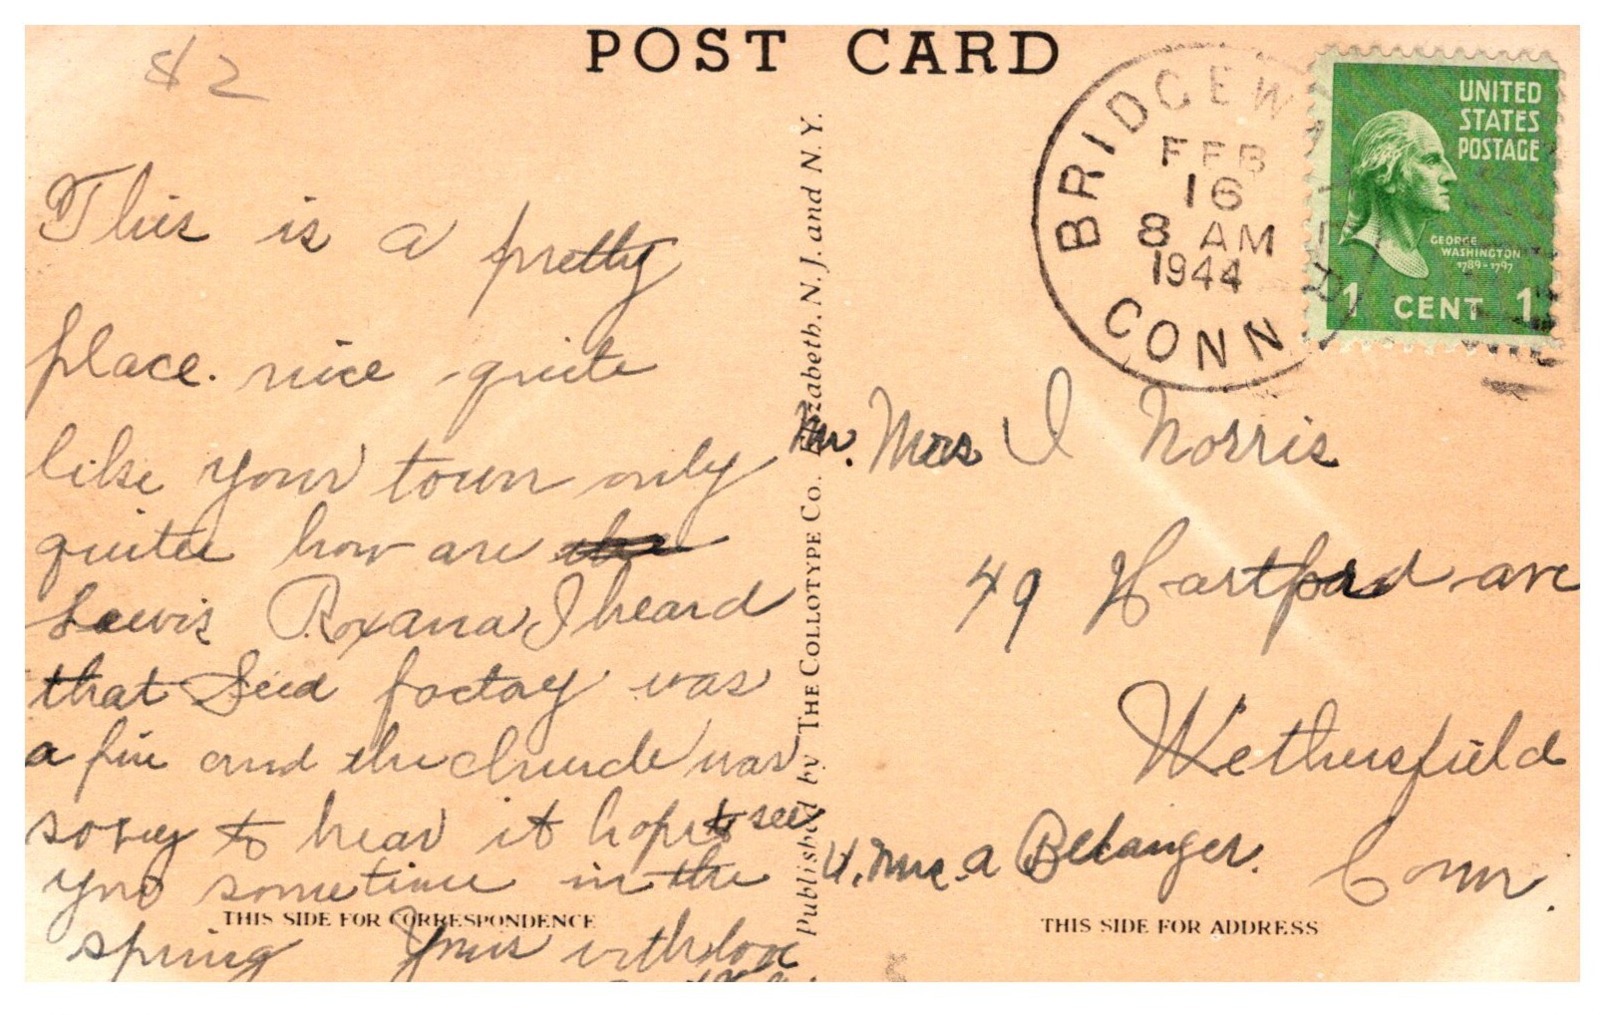 POST CARD
82
This is a pretty
place. nice quite
like your town only
quiter how are
Lewis Roxana I heard
that Seed factoy was
a fire and the churude was
sorey to hear it hope to see
you sometime in the
spring Yours with love
THIS SIDE FOR CORRESPONDENCE
Published by THE COLLOTYPE CO. Elizabeth, N. J. and N. Y.
BRIDGEW
FEB
16
8 AM
1944
CONN
UNITED
STATES
POSTAGE
GEORGE
WASHINGTON
1789-1797
1 CENT 1
Mr. Mrs I Norris
49 Hartford ave
Wethersfield
Conn.
a Belanger.
THIS SIDE FOR ADDRESS